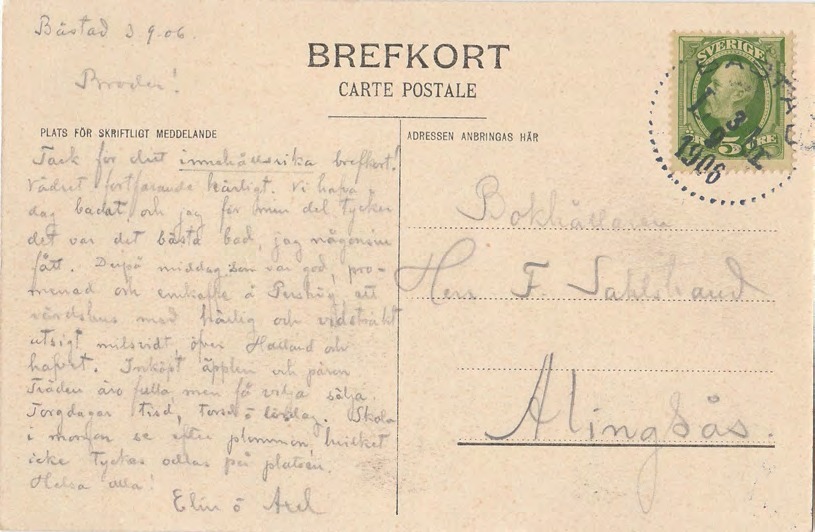 Båstad 3.9.06.
Broder!
BREFKORT
CARTE POSTALE
SVERIGE
5 ÖRE
BÅSTAD
3 9
1906
PLATS FÖR SKRIFTLIGT MEDDELANDE
Tack för ditt innehållsrika brefkort!
Vädret fortfarande härligt. Vi hafva i
dag badat och jag för min del tycker
det var det bästa bad, jag någonsin
fått. Derpå middag som var god, pro-
menad och enkaffe å Pershög, ett
värdshus med härlig och vidsträkt
utsigt milsvidt öfver Halland och
hafvet. Inköpt äpplen och päron
Träden äro fulla, men få vilja sälja.
Torgdagar tisd, torsd o lördag. Skola
i morgon se efter plommon hvilket
icke tyckas odlas på platsen.
Helsa alla!
Elin o Axel
ADRESSEN ANBRINGAS HÄR
Bokhållaren
Herr F. Sahlstrand
Alingsås.